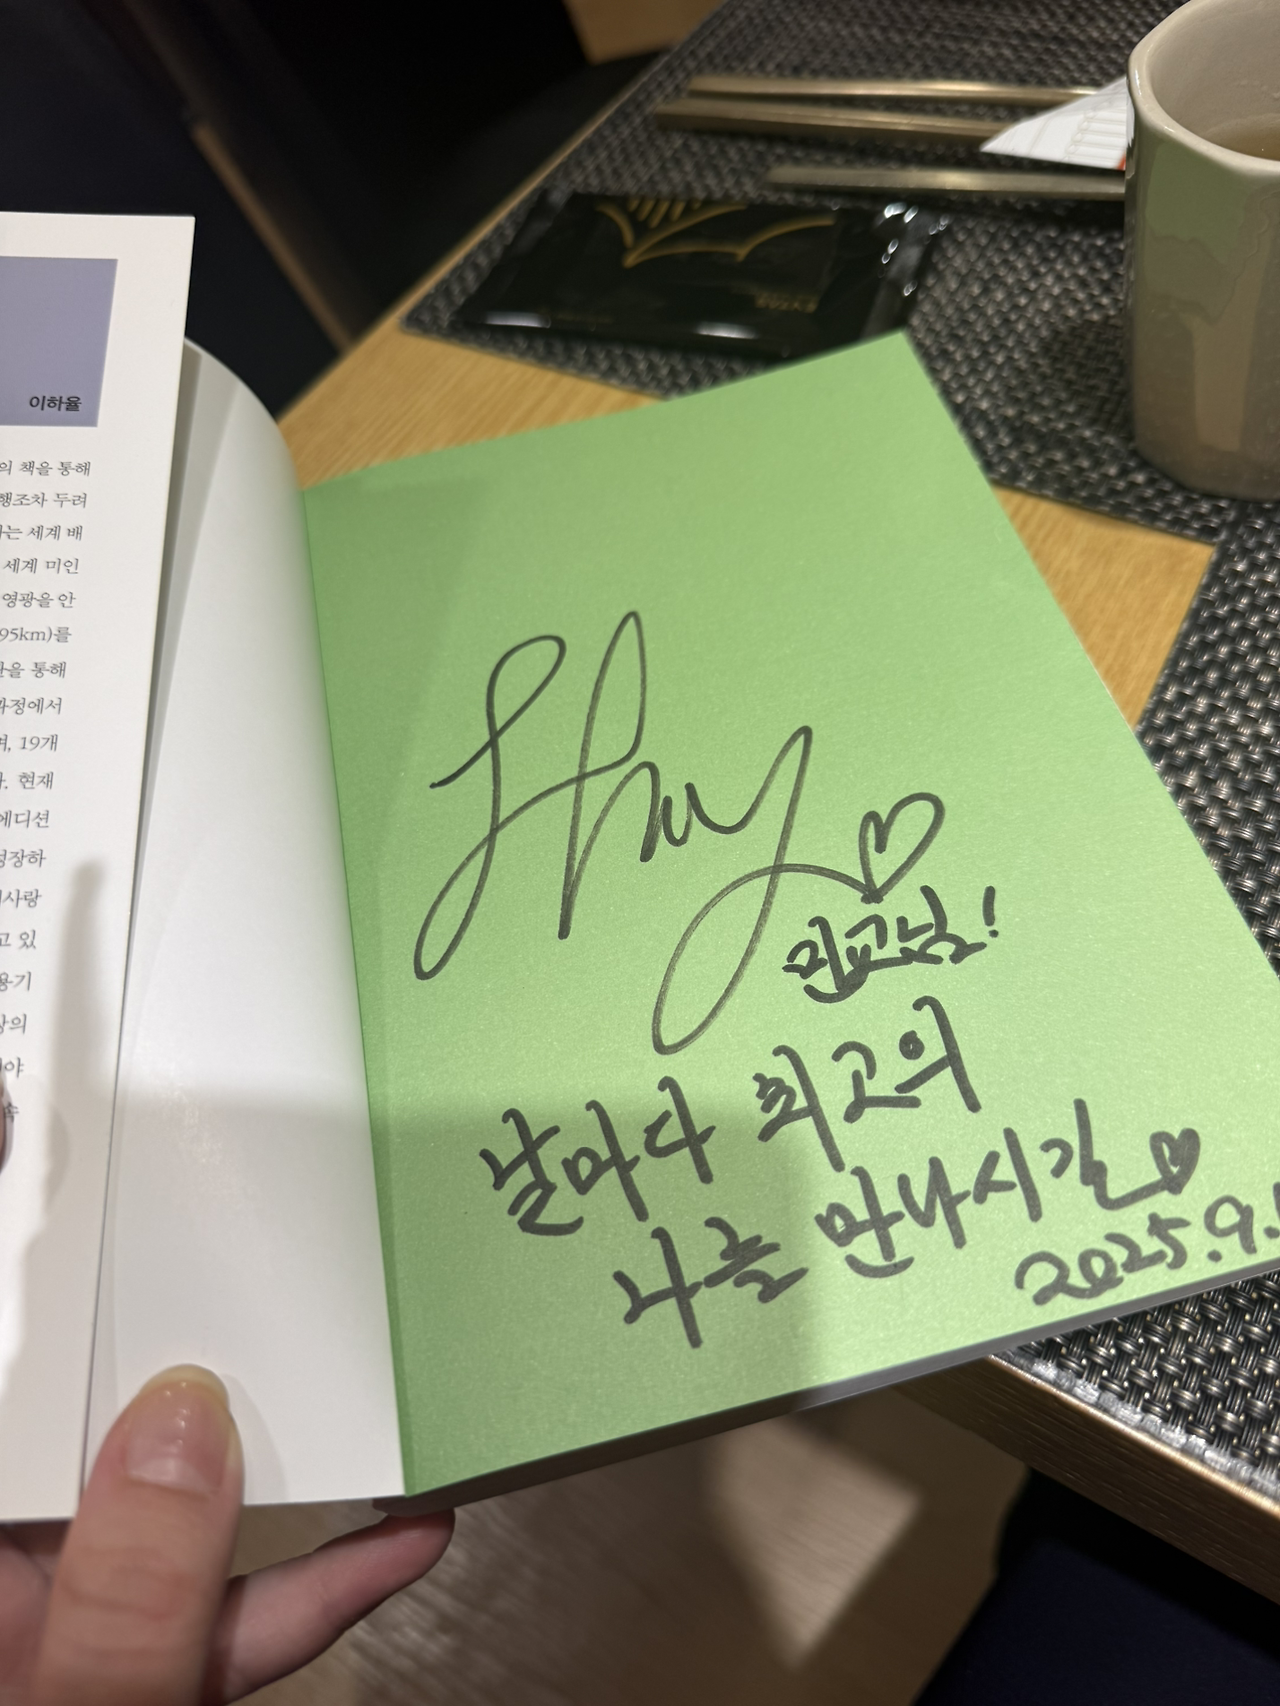 이하율
의 책을 통해
행조차 두려
는 세계 배
세계 미인
영광을 안
95km)를
을 통해
과정에서
며, 19개
현재
에디션
성장하
사랑
고 있
용기
의
야
속
민교님!
날마다 최고의
나를 만나시길♡
2025.9.